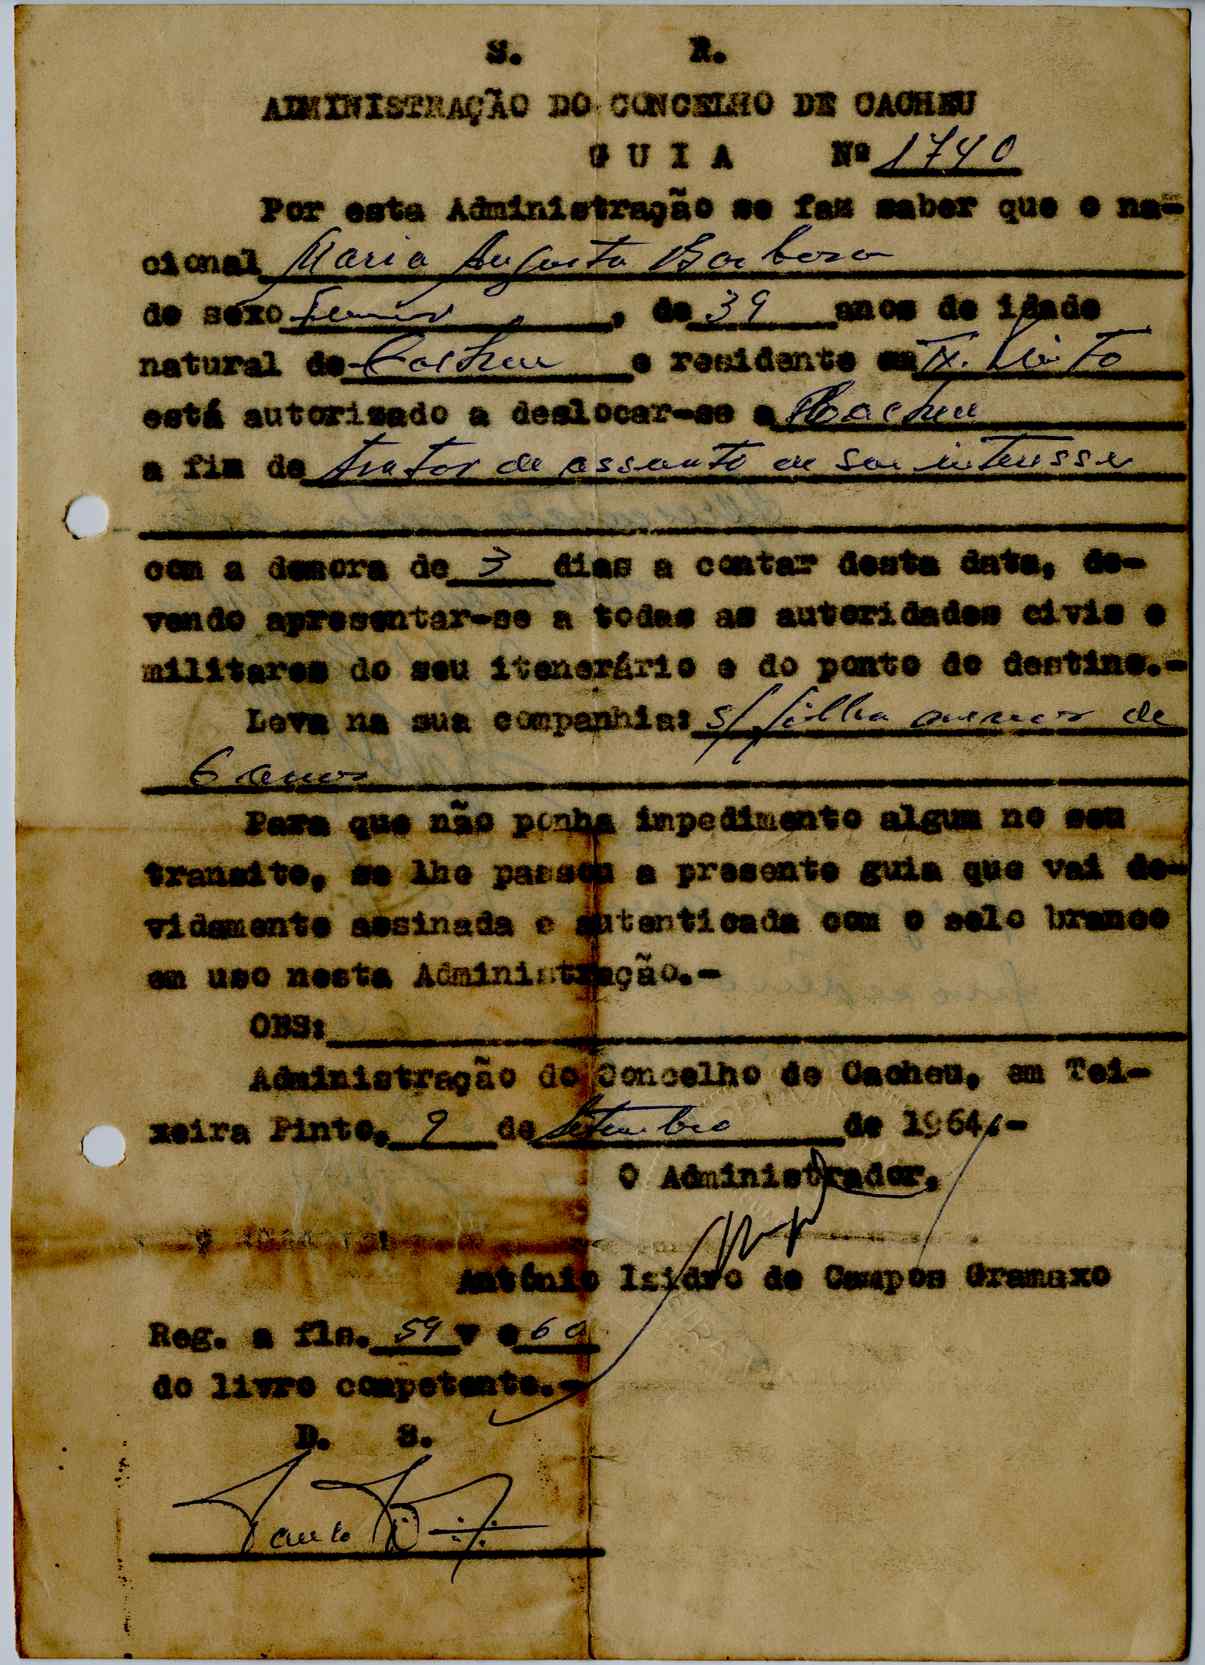 S. R.
ADMINISTRAÇÃO DO CONCELHO DE CACHEU
G U I A Nº 1740
Por esta Administração se faz saber que o na-
cional Maria Augusta Barbosa
de sexo Femin. , de 39 anos de idade
natural de Cacheu e residente em Tx. Pinto
está autorizado a deslocar-se a Cacheu
a fim de tratar de assunto de seu interesse
com a demora de 3 dias a contar desta data, de-
vendo apresentar-se a todas as autoridades civis e
militares do seu itenerário e do ponto de destino.-
Leva na sua companhia: s/ filha menor de
6 anos
Para que não ponha impedimento algum no seu
transito, se lhe passou a presente guia que vai de-
vidamente assinada e autenticada com o selo branco
em uso nesta Administração.-
OBS:
Administração do Concelho de Cacheu, em Tei-
xeira Pinto, 9 de Setembro de 1964.-
O Administrador,
António Isidro de Campos Gramaxo
Reg. a fls. 59 v e 60
do livro competente.-
D. S.